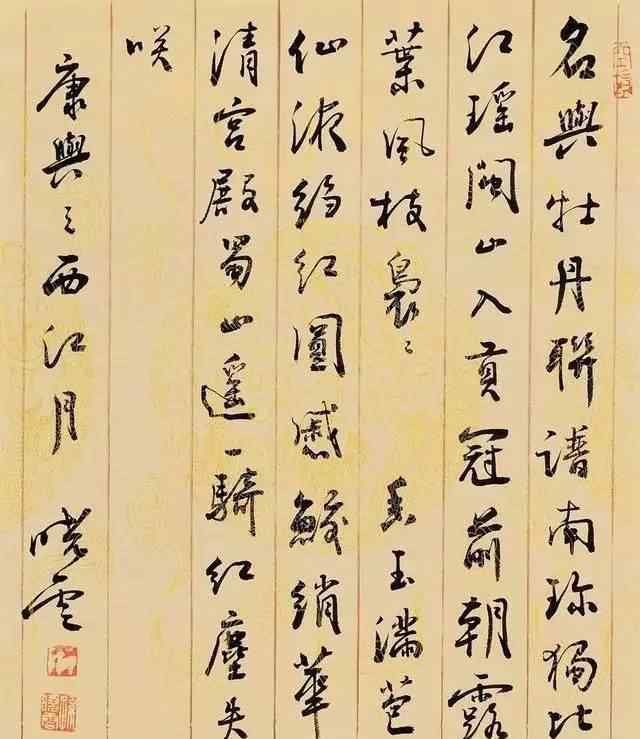 名與牡丹聯譜南珍獨比
江瑶閩山入貢冠前朝露
葉風枝裊々 香玉滿苞
仙液絳紅圓蹙鮫綃華
清宮殿蜀山遥一騎紅塵失
咲
康與之西江月 曉雲